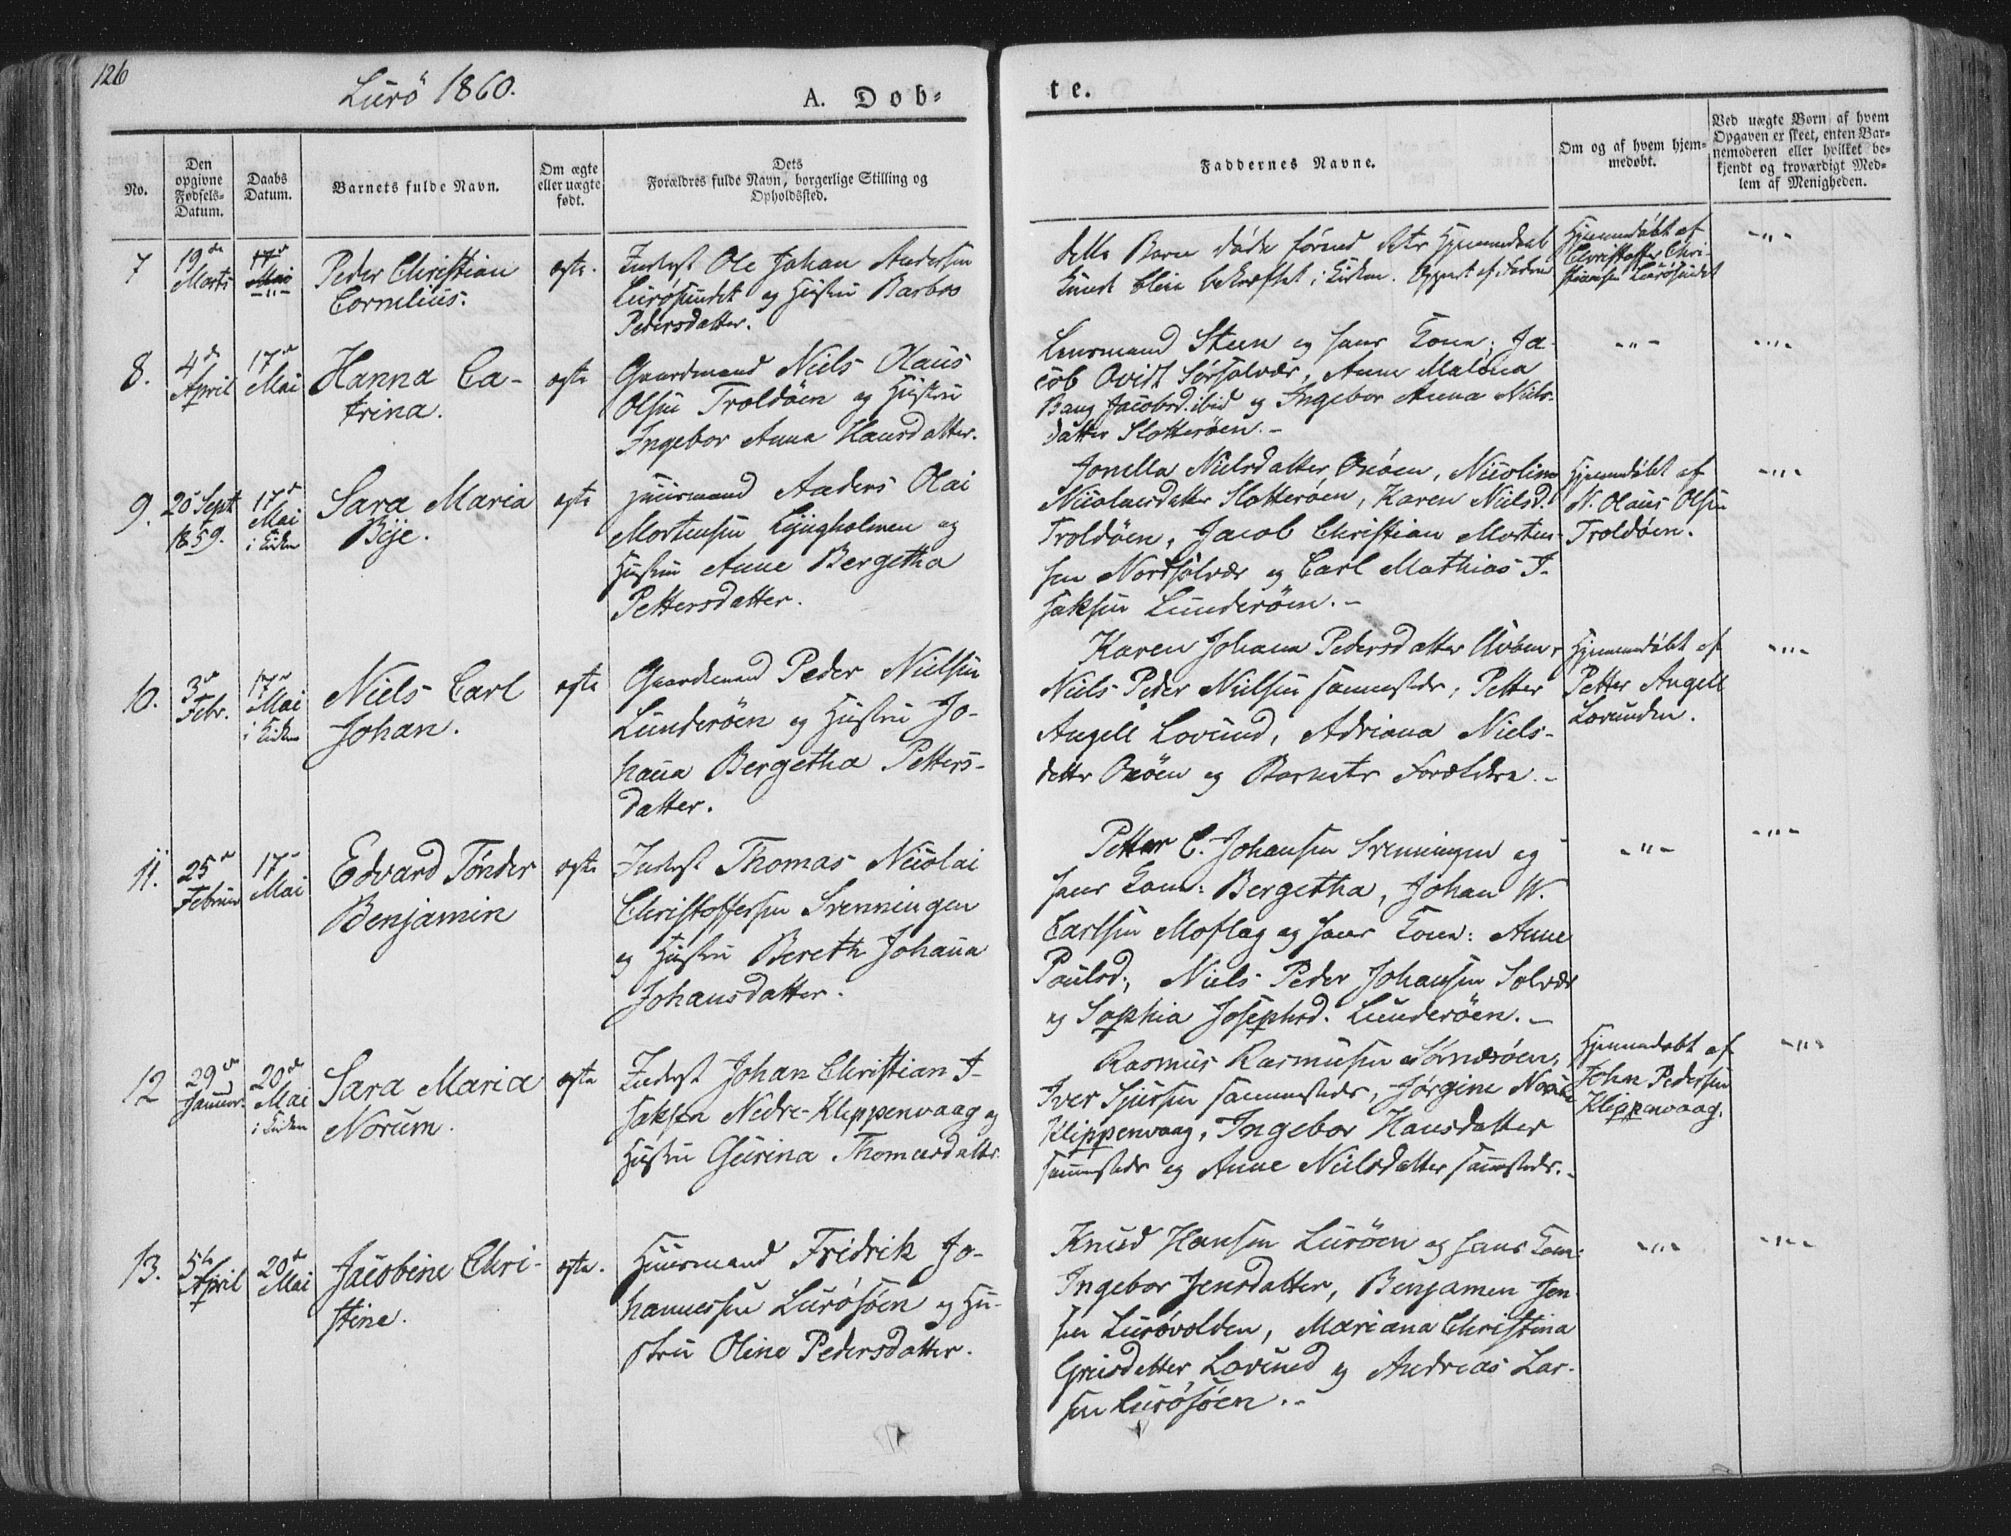 126
Lurö 1860.
A. Døb-
te.
No.
Den opgivne Fødsels-Datum.
Daabs Datum.
Barnets fulde Navn.
Om ægte eller uægte født.
Dets Forældres fulde Navn, borgerlige Stilling og Opholdssted.
Faddernes Navne.
Om og af hvem hjem-
medøbt.
Ved uægte Børn af hvem
Opgaven er skeet, enten Bar-
nemoderen eller hvilket be-
kjendt og troværdigt Med-
lem af Menigheden.
7
19de
Marts
17de
Mai
-"-
Peder Christian
Cornelius.
ægte.
Inderst Ole Johan Andersen
Lurösundet og Hustru Barbro
Pedersdatter.
dette Barn døde førend dets Hjemmedaab
kunde blive bekræftet i Kirken.
Hjemmedøbt af
Christoffer Chri-
stiansen Lurösundet
-"-
8.
4de
April
17de
Mai
Hanna Ca-
trina.
ægte
Gaardmand Niels Olaus
Olsen Troldöen og Hustru
Ingebor Anna Hansdatter.
Lensmand Steen og hans Kone, Ja-
cob Qvist Sörsolvær, Anne Malena
Bang Jacobsd. ibid og Ingebor Anna Niels-
datter Slotteröen.-
-"-
-"-
9.
20 Sept
1859.
17de
Mai
i Kirken
Sara Maria
Bye.
ægte
Huusmand Anders Olai
Mortensen Lyngholmen og
Hustru Anne Bergetha
Pettersdatter.
Jonella Nielsdatter Oxöen, Nicoline
Nicolaisdatter Slotteröen, Karen Nielsd.
Troldöen, Jacob Christian Morten-
sen Nordsolvær og Carl Mathias I-
saksen Lunderöen.-
Hjemmedøbt af
N. Olaus Olsen
Troldöen.
-"-
10.
3de
Febr.
17de
Mai
i Kirken
Niels Carl
Johan.
ægte
Gaardmand Peder Nielsen
Lunderöen og Hustru Jo-
hana Bergetha Petters-
datter.
Karen Johana Pedersdatter
Niels Peder Nielsen sammesteds, Petter
Angell Lovund, Adriana Niels-
datter Oxöen og Barnets Forældre.-
Hjemmedøbt af
Petter Angell
Lovunden.
-"-
11.
25de
Februar
17de
Mai
Edvard Tönder
Benjamin
ægte
Inderst Thomas Nicolai
Christoffersen Svenningen
og Hustru Bereth Johana
Johansdatter.
Petter C. Johansen Svenningen og
hans Kone: Bergetha, Johan W.
Carlsen Moflag og hans Kone: Anne
Paulsd., Niels Peder Johansen Solvær
og Sophia Josephsd. Lunderöen.-
-"-
-"-
12
29de
Januar.
20de
Mai
i Kirken
Sara Maria
Norum.
ægte
Inderst Johan Christian I-
saksen Nedre-Klippenvaag og
Hustru Gurina Thomasdatter.
Rasmus Rasmusen Sörnæsöen,
Iver Sjursen sammesteds, Jörgine
Klippenvaag, Ingebor Hansdatter
sammesteds og Anne Nielsdatter sammesteds.-
Hjemmedøbt af
John Pedersen
Klippenvaag.
-"-
13.
5te
April
20de
Mai
Jacobine Chri-
stine.
ægte.
Huusmand Fridrik Jo-
hannessen Lurösöen og Hu-
stru Oline Pedersdatter.
Knud Hansen Luröen og hans Kone
Ingebor Jensdatter, Benjamen Jen
sen Lurövolden, Mariana Christina
Greisdatter Lovund og Andreas Lar-
sen Lurösöen.-
-"-
-"-